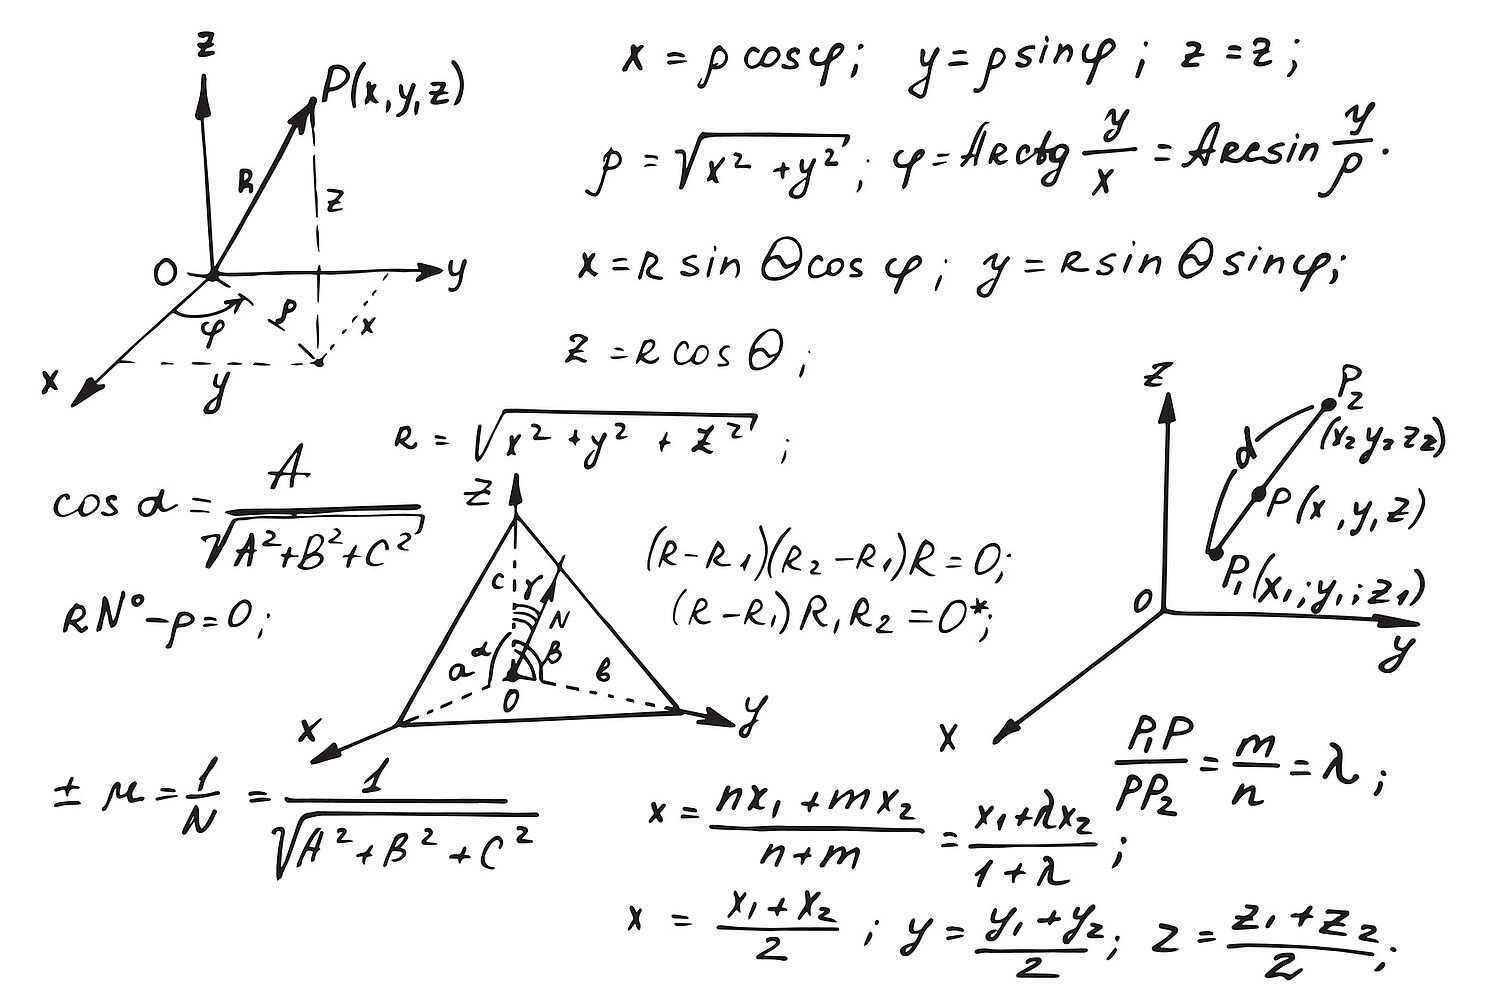 z
P(x,y,z)
R
z
O
y
φ
ρ
x
x
y
x = ρ cosφ; y = ρ sinφ ; z = z ;
ρ = √x² + y² ; φ = Arctg y/x = Arcsin y/ρ.
x = R sin Θ cos φ ; y = R sin Θ sinφ;
z = R cos Θ ;
R = √x² + y² + z² ;
cos α = A/√A²+B²+C²
RN° - p = 0 ;
z
c
γ
N
α
a
β
в
O
x
y
(R-R₁)(R₂-R₁)R = 0;
(R-R₁)R₁R₂ = 0*;
z
P₂
(x₂ y₂ z₂)
d
P(x ,y,z)
P₁(x₁;y₁;z₁)
O
y
x
P₁P/PP₂ = m/n = λ ;
± μ = 1/N = 1/√A²+B²+C²
x = nx₁ + mx₂/n+m = x₁+λx₂/1+λ ;
x = x₁+x₂/2 ; y = y₁+y₂/2 ; z = z₁+z₂/2 ;